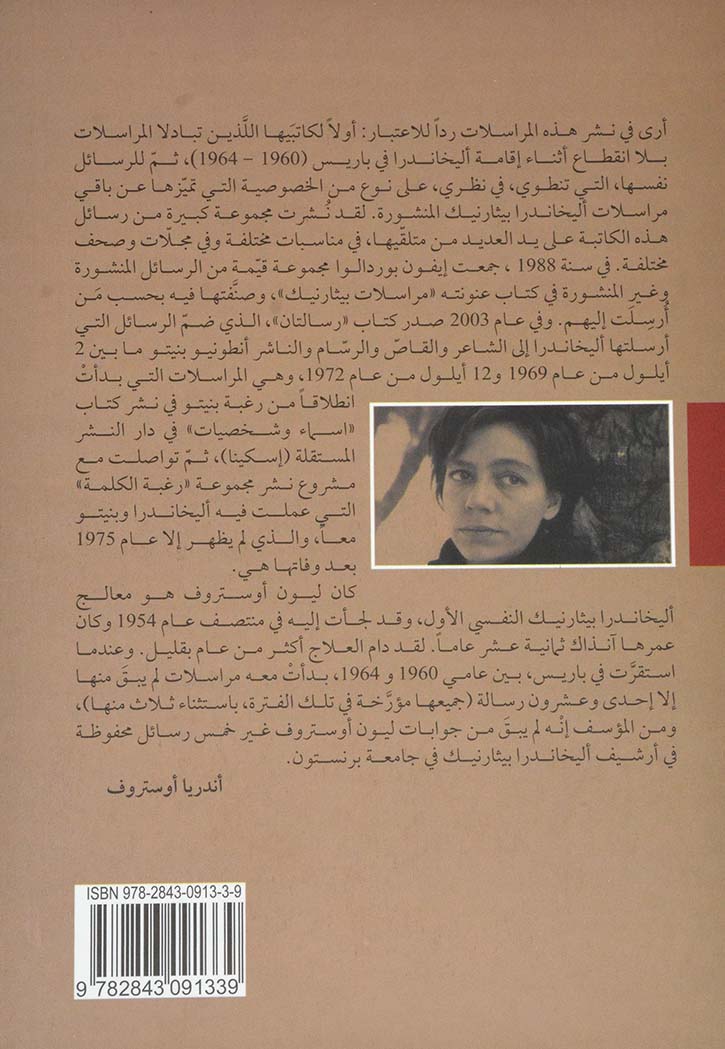 أرى في نشر هذه المراسلات رداً للاعتبار: أولاً لكاتبَيها اللَّذين تبادلا المراسلات
بلا انقطاع أثناء إقامة أليخاندرا في باريس (1960 – 1964)، ثمّ للرسائل
نفسها، التي تنطوي، في نظري، على نوع من الخصوصية التي تميّزها عن باقي
مراسلات أليخاندرا بيثارنيك المنشورة. لقد نُشرت مجموعة كبيرة من رسائل
هذه الكاتبة على يد العديد من متلقّيها، في مناسبات مختلفة وفي مجلّات وصحف
مختلفة. في سنة 1988 ، جمعت إيفون بوردالوا مجموعة قيّمة من الرسائل المنشورة
وغير المنشورة في كتاب عنونته «مراسلات بيثارنيك»، وصنَّفتها فيه بحسب مَن
أُرسِلَت إليهم. وفي عام 2003 صدر كتاب «رسالتان»، الذي ضمّ الرسائل التي
أرسلتها أليخاندرا إلى الشاعر والقاصّ والرسّام والناشر أنطونيو بنيتو ما بين 2
أيلول من عام 1969 و12 أيلول من عام 1972، وهي المراسلات التي بدأتْ
انطلاقاً من رغبة بنيتو في نشر كتاب
«اسماء وشخصيات» في دار النشر
المستقلة (إسكينا)، ثمّ تواصلت مع
مشروع نشر مجموعة «رغبة الكلمة»
التي عملت فيه أليخاندرا وبنيتو
معاً، والذي لم يظهر إلا عام 1975
بعد وفاتها هي.
كان ليون أوستروف هو معالج
أليخاندرا بيثارنيك النفسي الأول، وقد لجأت إليه في منتصف عام 1954 وكان
عمرها آنذاك ثمانية عشر عاماً. لقد دام العلاج أكثر من عام بقليل. وعندما
استقرَّت في باريس، بين عامي 1960 و 1964، بدأتْ معه مراسلات لم يبقَ منها
إلا إحدى وعشرون رسالة (جميعها مؤرَّخة في تلك الفترة، باستثناء ثلاث منها)،
ومن المؤسف إنْه لم يبقَ من جوابات ليون أوستروف غير خمس رسائل محفوظة
في أرشيف أليخاندرا بيثارنيك في جامعة برنستون.
أندريا أوستروف
ISBN 978-2843-0913-3-9
9 782843 091339